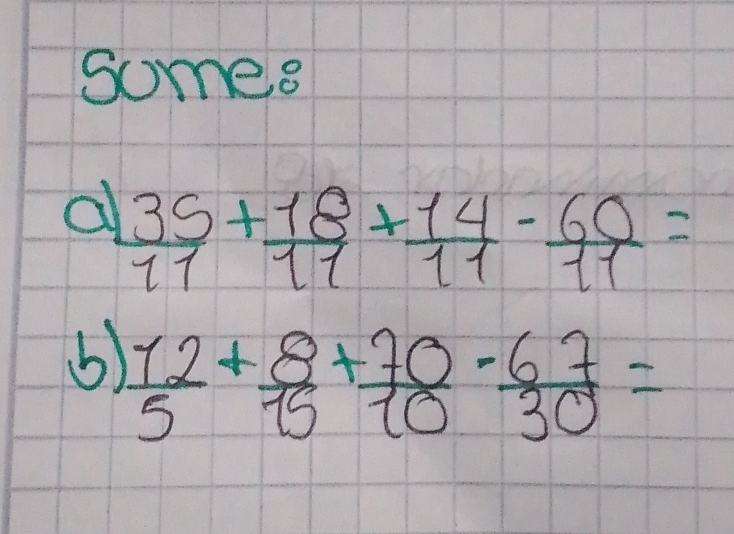 Sume:
a) 35/11 + 18/11 + 14/11 - 60/11 =
b) 12/5 + 8/15 + 70/10 - 67/30 =